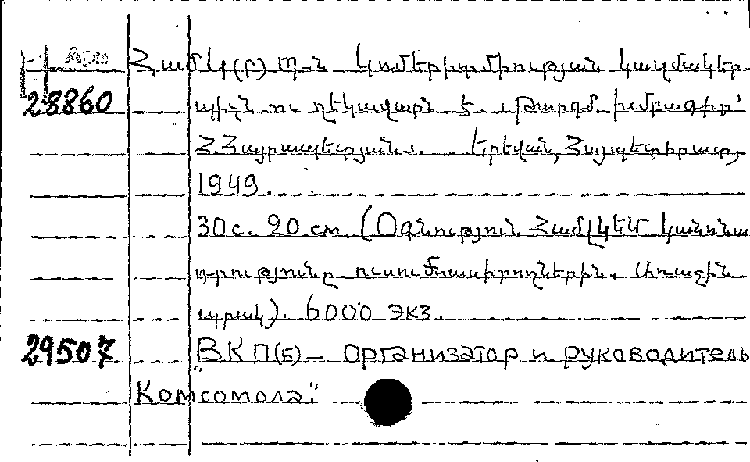 ՀամԿ(բ)Պ-ն կոմերիտմիության կազմակեր-
28860 պիչն ու ղեկավարն է. Թարգմ. խմբագիր՝
Հ. Հայրապետյան. Երևան, Հայպետհրատ,
1949.
30 с. 20 см. (Օգնություն ՀամԼԿԵՄ կանոնա-
դրությունը ուսումնասիրողներին. Առաջին
պրակ). 6000 экз.
29507 "ВКП(б) – организатор и руководитель
Комсомола".